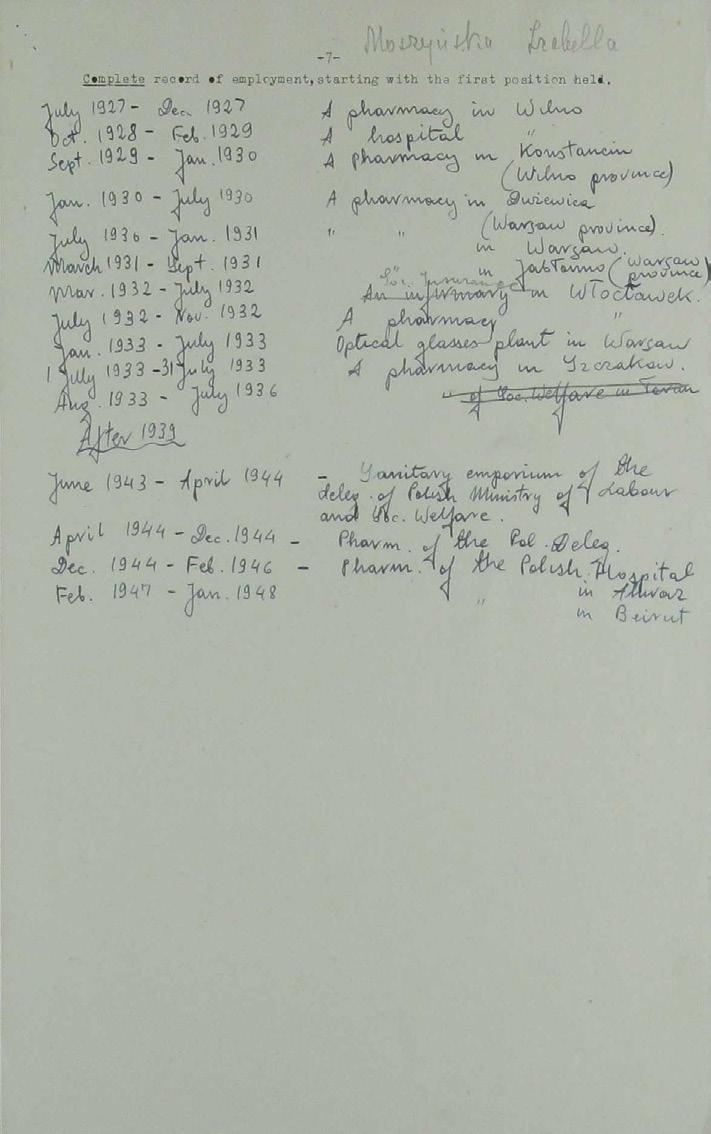 Moszyńska Izabella
-7-
Complete record of employment, starting with the first position held.
July 1927 - Dec. 1927 A pharmacy in Wilno
Oct. 1928 - Feb. 1929 A hospital "
Sept. 1929 - Jan. 1930 A pharmacy in Konstancin
(Wilno province)
Jan. 1930 - July 1930 A pharmacy in
(Warsaw province).
July 1930 - Jan. 1931 " " in Warsaw.
March 1931 - Sept. 1931 in Jabłonno (Warsaw province)
Soc. Insurance
Mar. 1932 - July 1932 An infirmary in Włocławek.
July 1932 - Nov. 1932 A pharmacy "
Jan. 1933 - July 1933 Optical glasses plant in Warsaw
1 July 1933 - 31 July 1933 A pharmacy in Szczakow.
Aug. 1933 - July 1936 " of Soc. Welfare in Toruń
After 1939
June 1943 - April 1944 - Sanitary emporium of the
deleg. of Polish Ministry of Labour
and Soc. Welfare.
April 1944 - Dec. 1944 - Pharm. of the Pol. Deleg.
Dec. 1944 - Feb. 1946 - Pharm. of the Polish Hospital
in Ahwaz
Feb. 1947 - Jan. 1948 " in Beirut